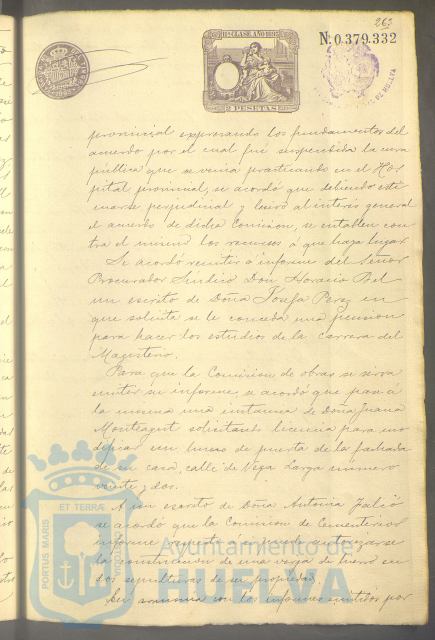 263
11ª CLASE AÑO 1895
Nº 0.379.332
2 PESETAS
DE HUELVA
provincial expresando los fundamentos del
acuerdo por el cual fué suspendida la cura
pública que se venía practicando en el Hos
pital provincial, se acordó que debiendo esti
marse perjudicial y lesivo al interés general
el acuerdo de dicha Comision, se entablen con
tra el mismo los recursos á que haya lugar
Se acordó remitir á informe del Señor
Procurador Síndico Don Horacio Bel
un escrito de Doña Josefa Perez en
que solicita se le conceda una pension
para hacer los estudios de la carrera del
Magisterio.
Para que la Comision de obras se sirva
emitir su informe se acordó que pase á
la misma una instancia de Doña Juana
Monteagut solicitando licencia para mo
dificar un hueco de puerta de la fachada
de su casa, calle de Vega Larga número
veinte y dos.
A un escrito de Doña Antonia Jaliö
se acordó que la Comision de Cementerios
informe respecto á si puede autorizarse
la construccion de una verja de hierro en
dos sepulturas de su propiedad.
En armonia con los informes emitidos por
PORTUS MARIS ET TERRÆ
Ayuntamiento de
HUELVA